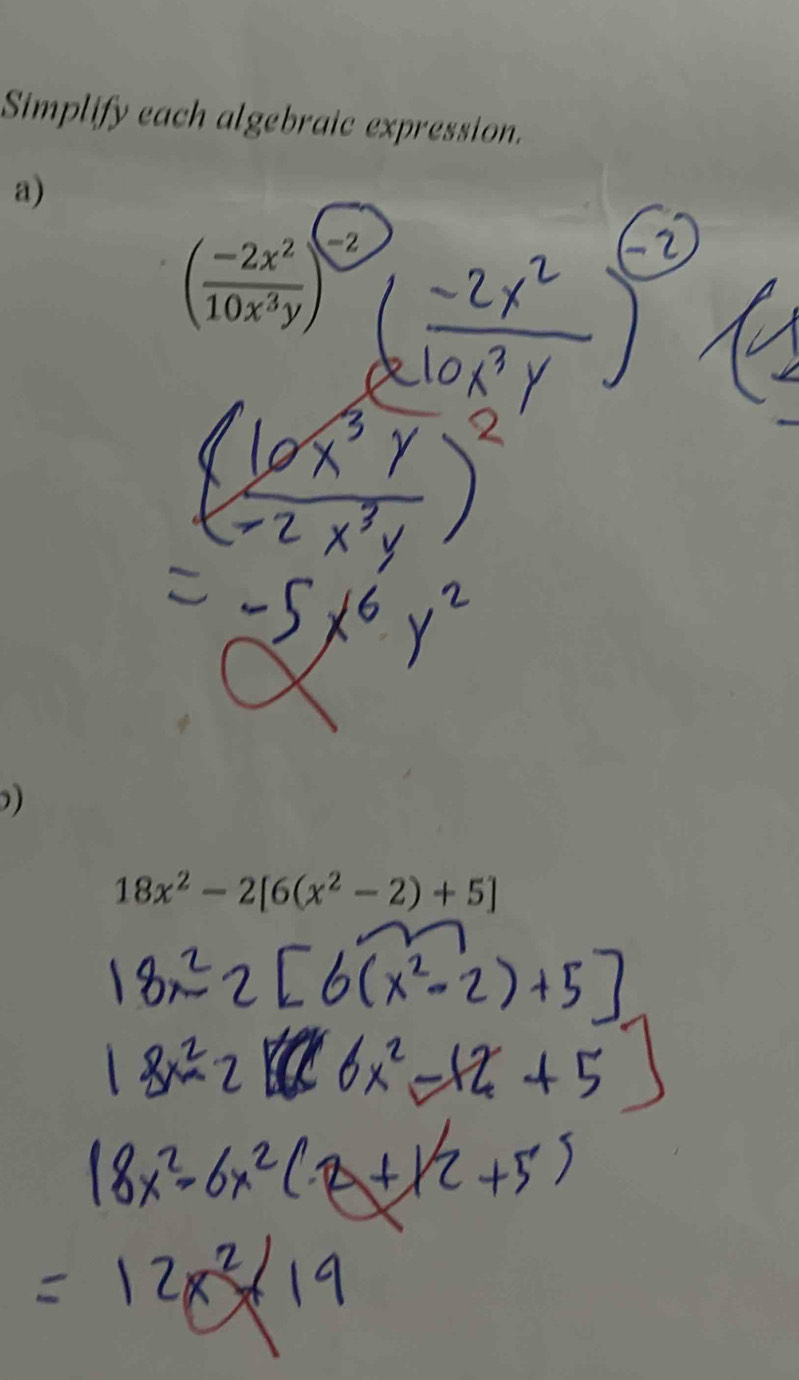 Simplify each algebraic expression.
a)
(-2x²/10x³y)⁻² (-2x²/10x³y)⁻² (
(10x³y/-2x³y)²
= -5x⁶y²
b)
18x² − 2[6(x² − 2) + 5]
18x²-2[6(x²-2)+5]
18x²-2 6x²-12+5]
18x²-6x²(-2+12+5)
= 12x²+19